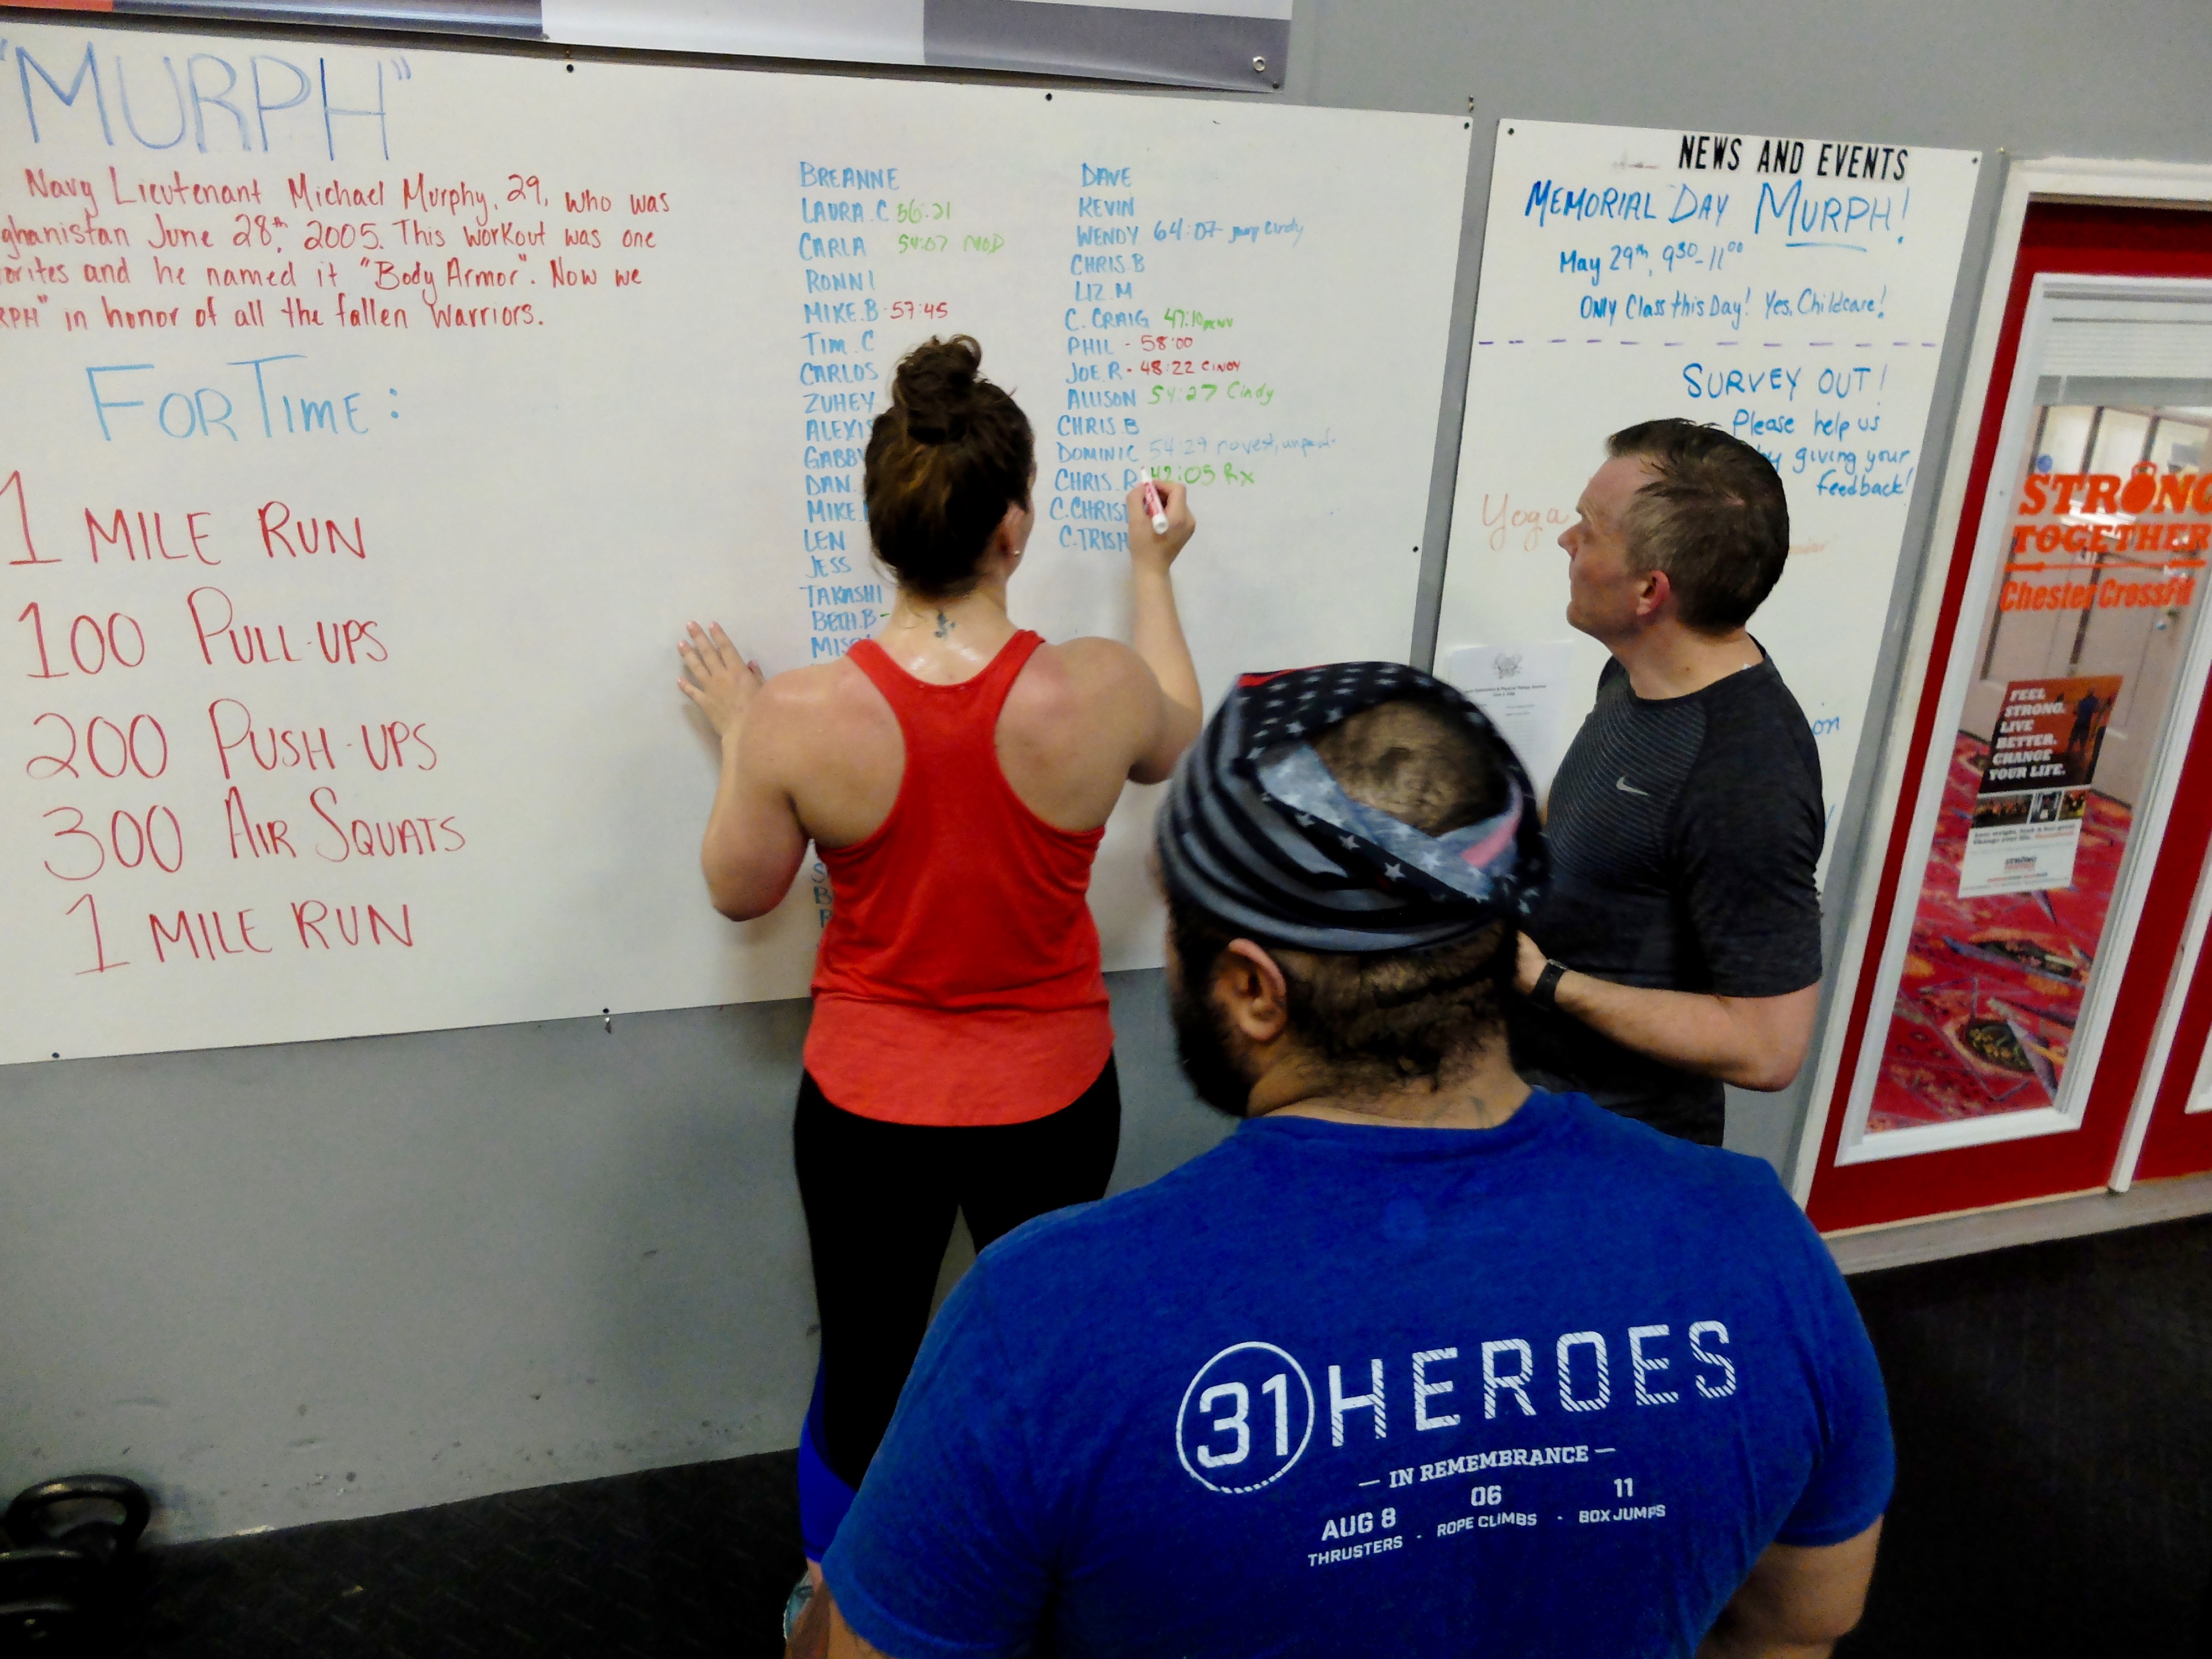 "MURPH"
Navy Lieutenant Michael Murphy, 29, who was
ghanistan June 28th, 2005. This workout was one
orites and he named it "Body Armor". Now we
RPH" in honor of all the fallen warriors.
FOR TIME:
1 MILE RUN
100 PULL-UPS
200 PUSH-UPS
300 AIR SQUATS
1 MILE RUN
BREANNE
LAURA.C 56:21
CARLA 54:07 MOD
RONNI
MIKE.B - 57:45
TIM.C
CARLOS
ZUHEY
ALEXIS
GABBY
DAN.
MIKE.
LEN
JESS
TAKASHI
BETH.B -
DAVE
KEVIN
WENDY 64:07 Cindy
CHRIS.B
LIZ.M
C. CRAIG 47:10
PHIL - 58:00
JOE.R - 48:22 CINDY
ALLISON 54:27 Cindy
CHRIS.B
DOMINIC 54:29 no vest, unpart.
CHRIS.R 42:05 Rx
C.CHRIS
C.TRISH
NEWS AND EVENTS
MEMORIAL DAY MURPH!
May 29th, 930-1100
ONLY Class this Day! Yes, Childcare!
SURVEY OUT!
Please help us
by giving your
feedback!
Yoga
on
STRONG
TOGETHER
Chester CrossFit
FEEL
STRONG.
LIVE
BETTER.
CHANGE
YOUR LIFE.
31 HEROES
— IN REMEMBRANCE —
AUG 8 06 11
THRUSTERS - ROPE CLIMBS - BOX JUMPS